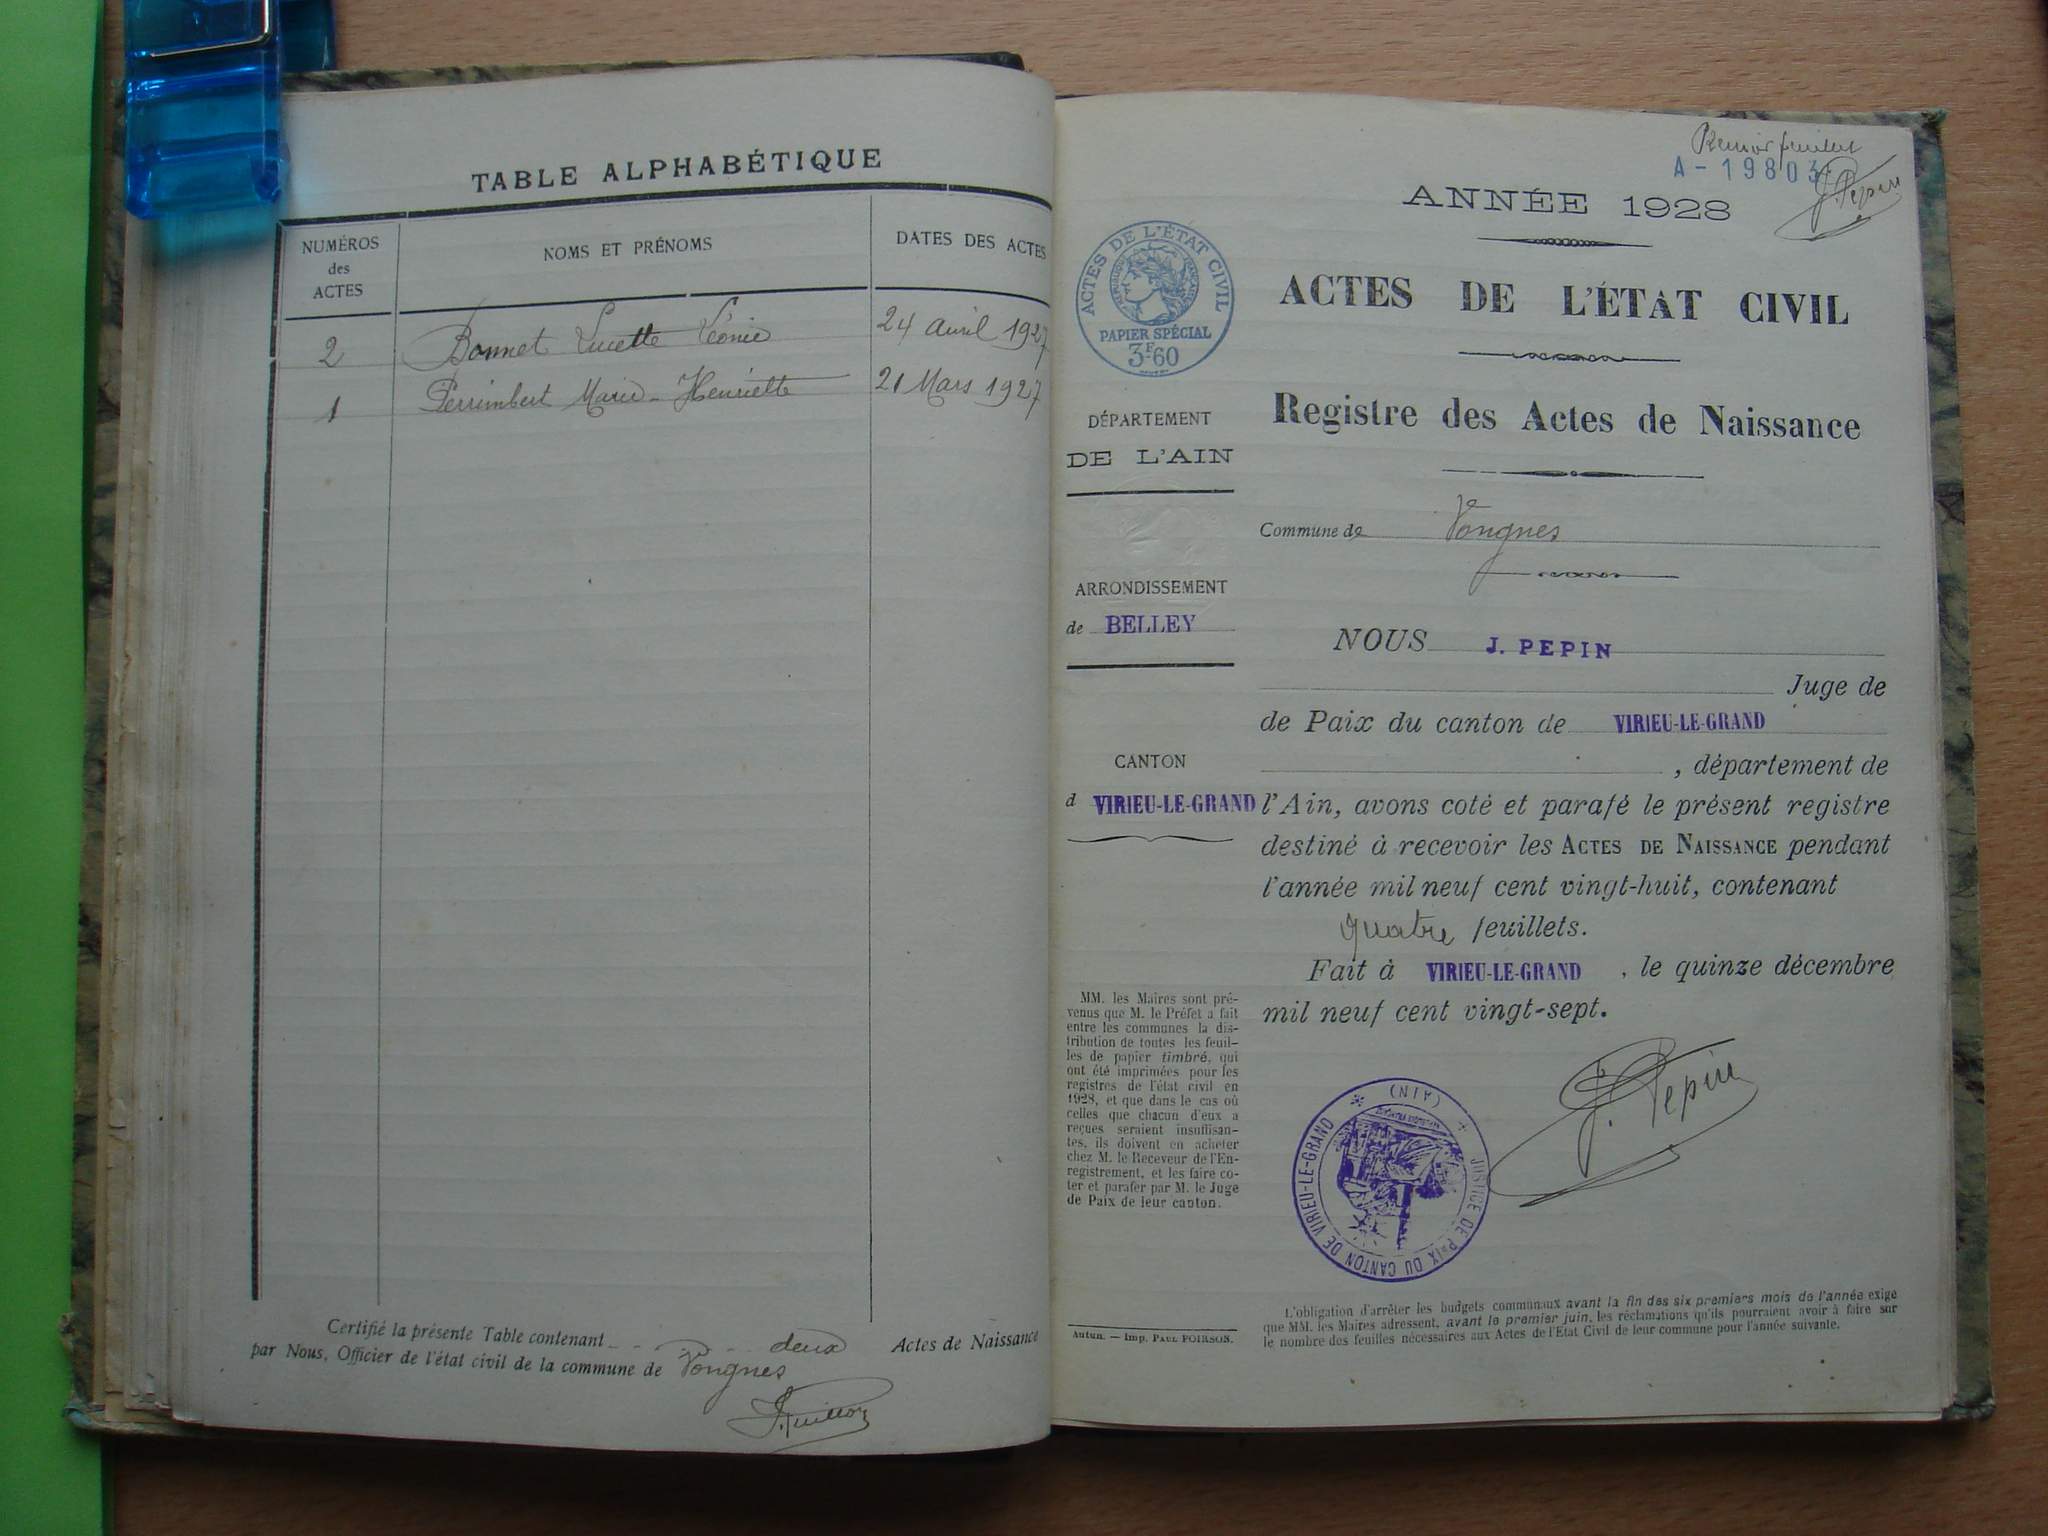 TABLE ALPHABÉTIQUE
NUMÉROS
des
ACTES
NOMS ET PRÉNOMS
DATES DES ACTES
2 Bonnet Lucette Léonie 24 avril 1927
1 Perrimbert Marie-Henriette 21 Mars 1927
Certifié la présente Table contenant deux Actes de Naissance
par Nous, Officier de l'état civil de la commune de Vongnes
Premier feuillet
A-19803
J. Pepin
ANNÉE 1928
ACTES DE L'ÉTAT CIVIL
RÉPUBLIQUE FRANÇAISE
PAPIER SPÉCIAL
3F60
ACTES DE L'ÉTAT CIVIL
Registre des Actes de Naissance
DÉPARTEMENT
DE L'AIN
Commune de Vongnes
ARRONDISSEMENT
de BELLEY
CANTON
d VIRIEU-LE-GRAND
NOUS J. PEPIN
Juge de
de Paix du canton de VIRIEU-LE-GRAND
, département de
l'Ain, avons coté et parafé le présent registre
destiné à recevoir les ACTES DE NAISSANCE pendant
l'année mil neuf cent vingt-huit, contenant
quatre feuillets.
Fait à VIRIEU-LE-GRAND, le quinze décembre
mil neuf cent vingt-sept.
J. Pepin
JUSTICE DE PAIX DU CANTON DE VIRIEU-LE-GRAND
(AIN)
MM. les Maires sont pré-
venus que M. le Préfet a fait
entre les communes la dis-
tribution de toutes les feuil-
les de papier timbré, qui
ont été imprimées pour les
registres de l'état civil en
1928, et que dans le cas où
celles que chacun d'eux a
reçues seraient insuffisan-
tes, ils doivent en acheter
chez M. le Receveur de l'En-
registrement, et les faire co-
ter et parafer par M. le Juge
de Paix de leur canton.
Autun. — Imp. PAUL POIRSON.
L'obligation d'arrêter les budgets communaux avant la fin des six premiers mois de l'année exige
que MM. les Maires adressent, avant le premier juin, les réclamations qu'ils pourraient avoir à faire sur
le nombre des feuilles nécessaires aux Actes de l'Etat Civil de leur commune pour l'année suivante.